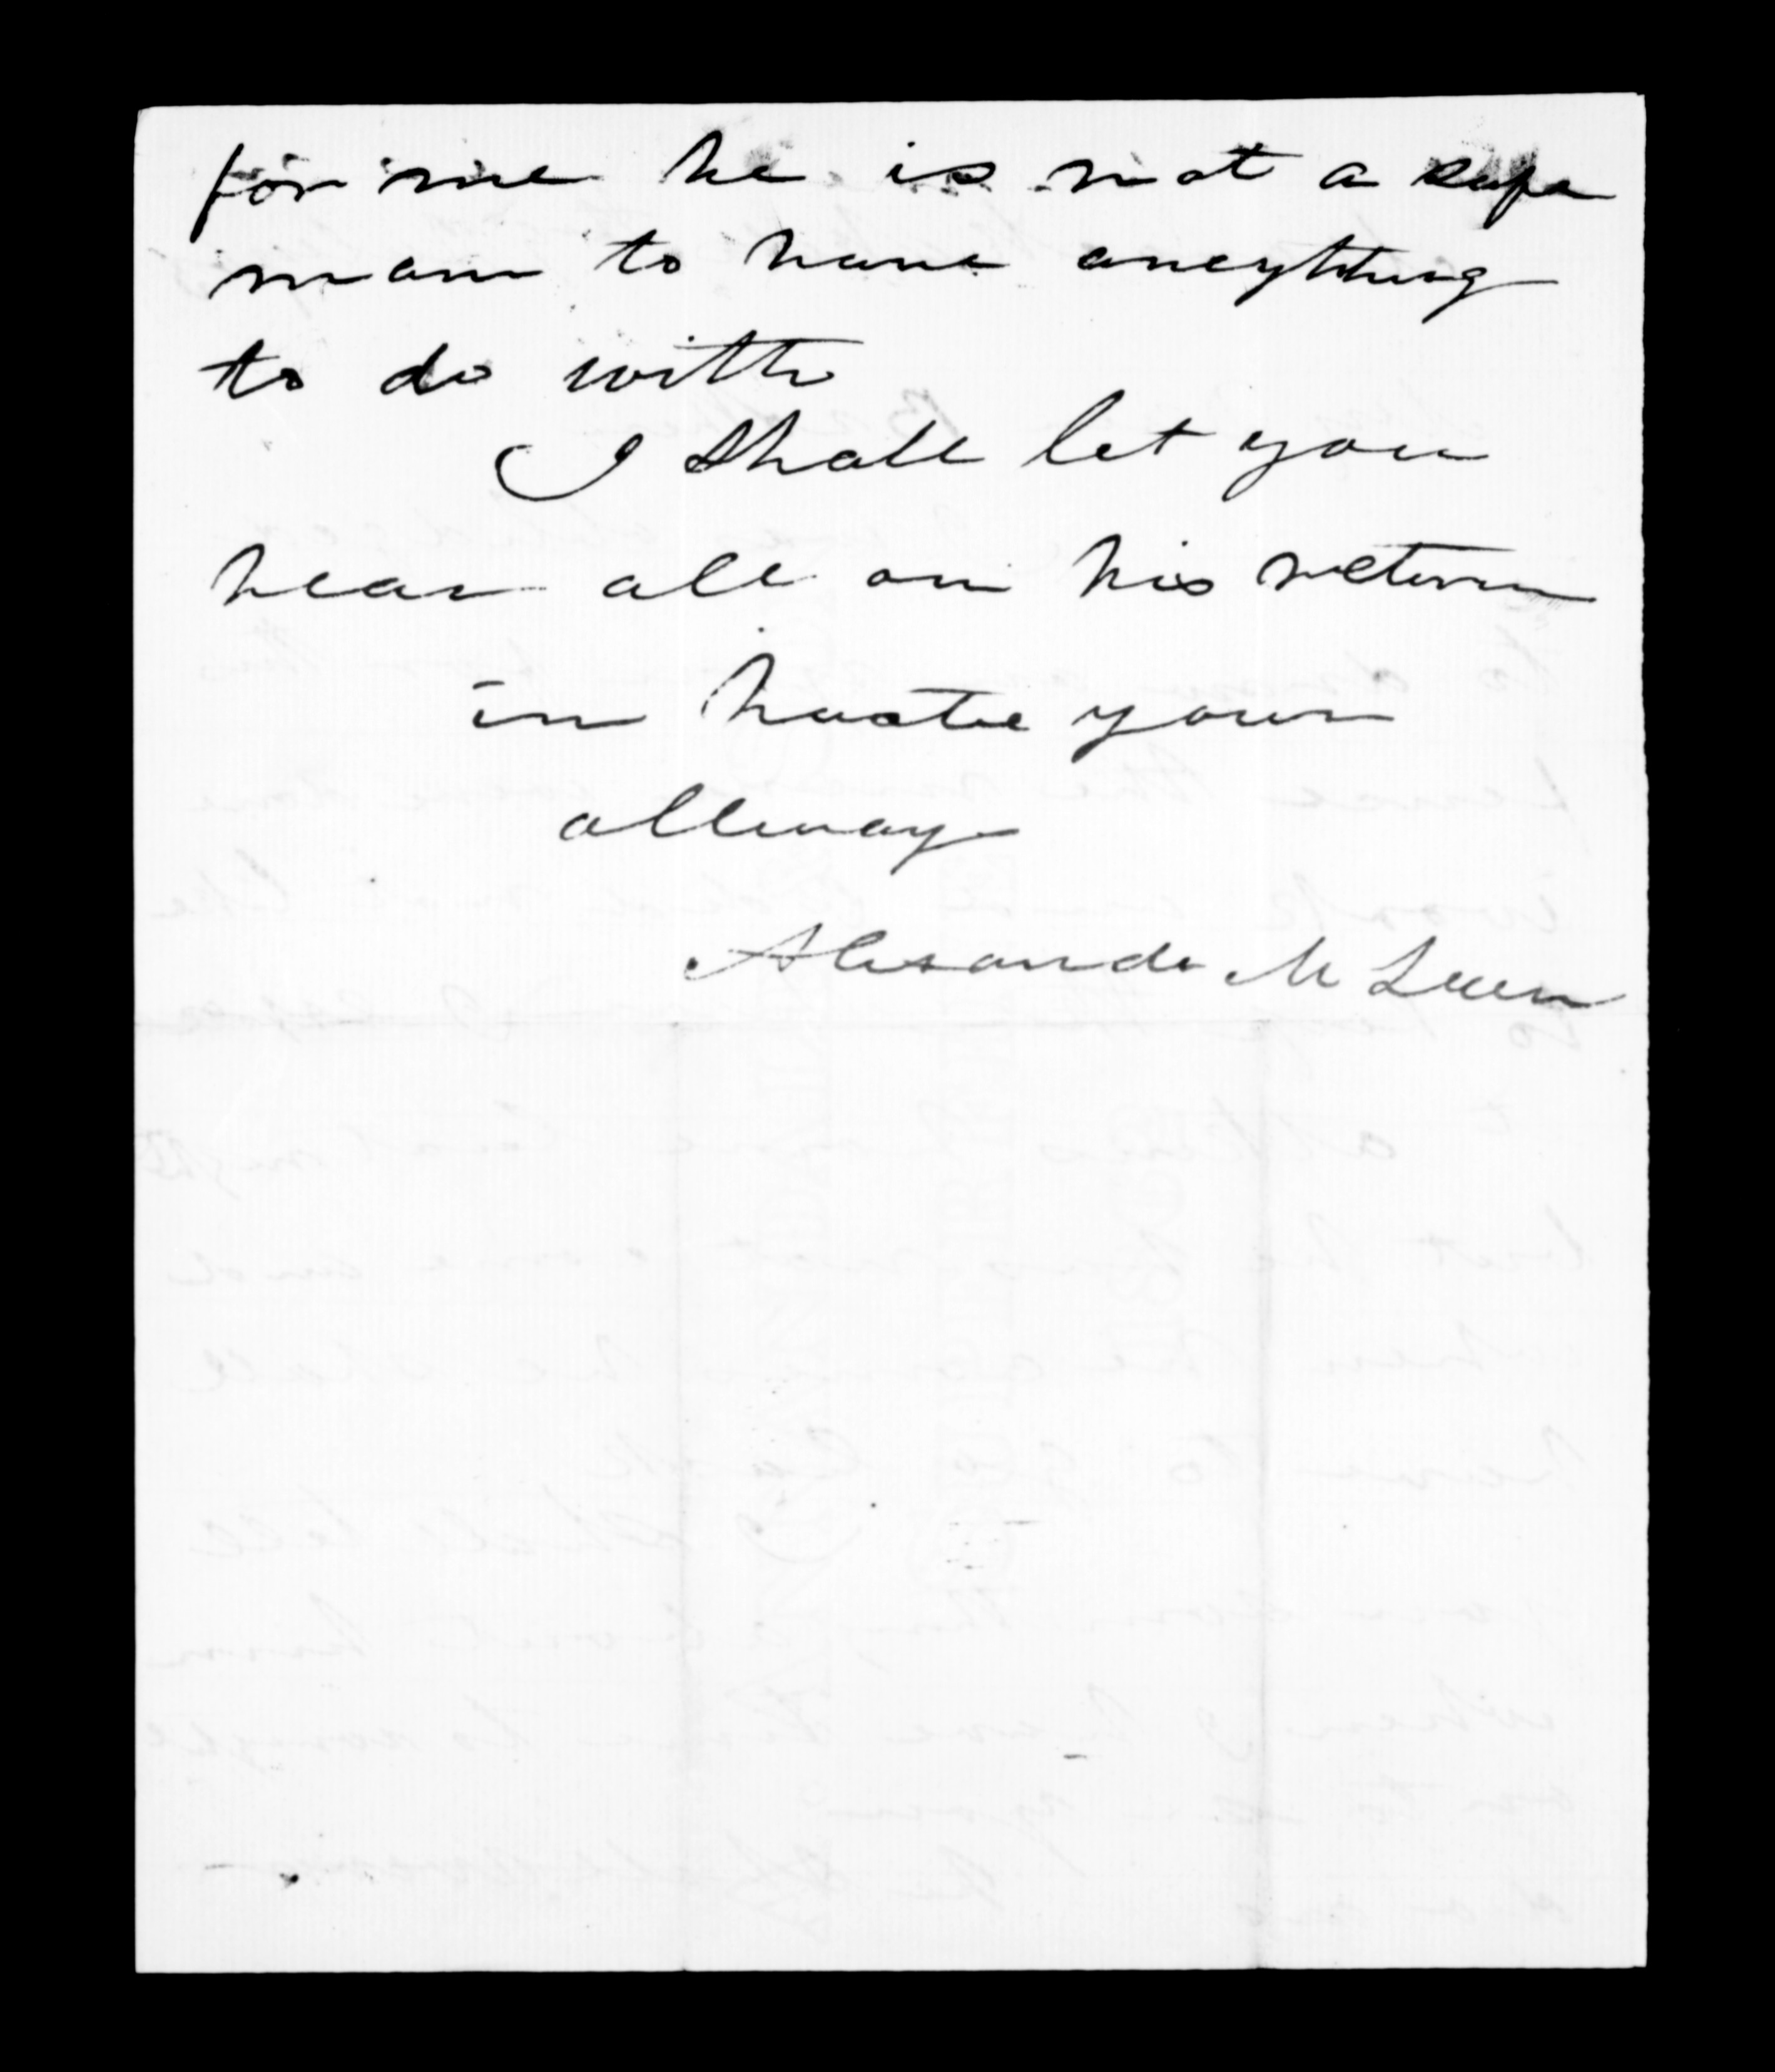 for me he is not a safe
man to have aneything
to do with
I shall let you
hear all on his return
in haste your
allway
Alexander McLean